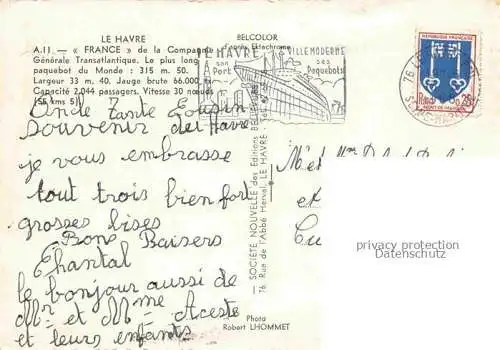 LE HAVRE
A.11 — « FRANCE » de la Compagnie
Générale Transatlantique. Le plus long
paquebot du Monde : 315 m. 50.
Largeur 33 m. 40. Jauge brute 66.000
Capacité 2.044 passagers. Vitesse 30 nœuds
(55 kms 5)
BELCOLOR
d'après Ektachrome
LE HAVRE
son
Port
VILLE MODERNE
ses
Paquebots
REPUBLIQUE FRANÇAISE
MONT-DE-MARSAN
76 LE
Oncle Tante Cousin
Souvenir du Havre
je vous embrasse
tout trois bien fort
grosses bises
Bons Baisers
Chantal
le bonjour aussi de
Mr et Mme Aceste
et leurs enfants
— SOCIÉTÉ NOUVELLE des Éditions BELCOLOR
76, Rue de l'Abbé Herval, LE HAVRE
Photo
Robert LHOMMET
M et Mme
et
privacy protection
Datenschutz